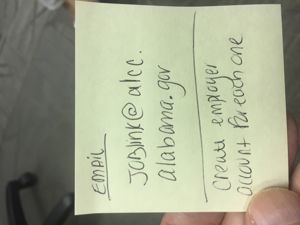 EMAIL
JOBlink@alcc.
alabama.gov
Create employer
account for each one